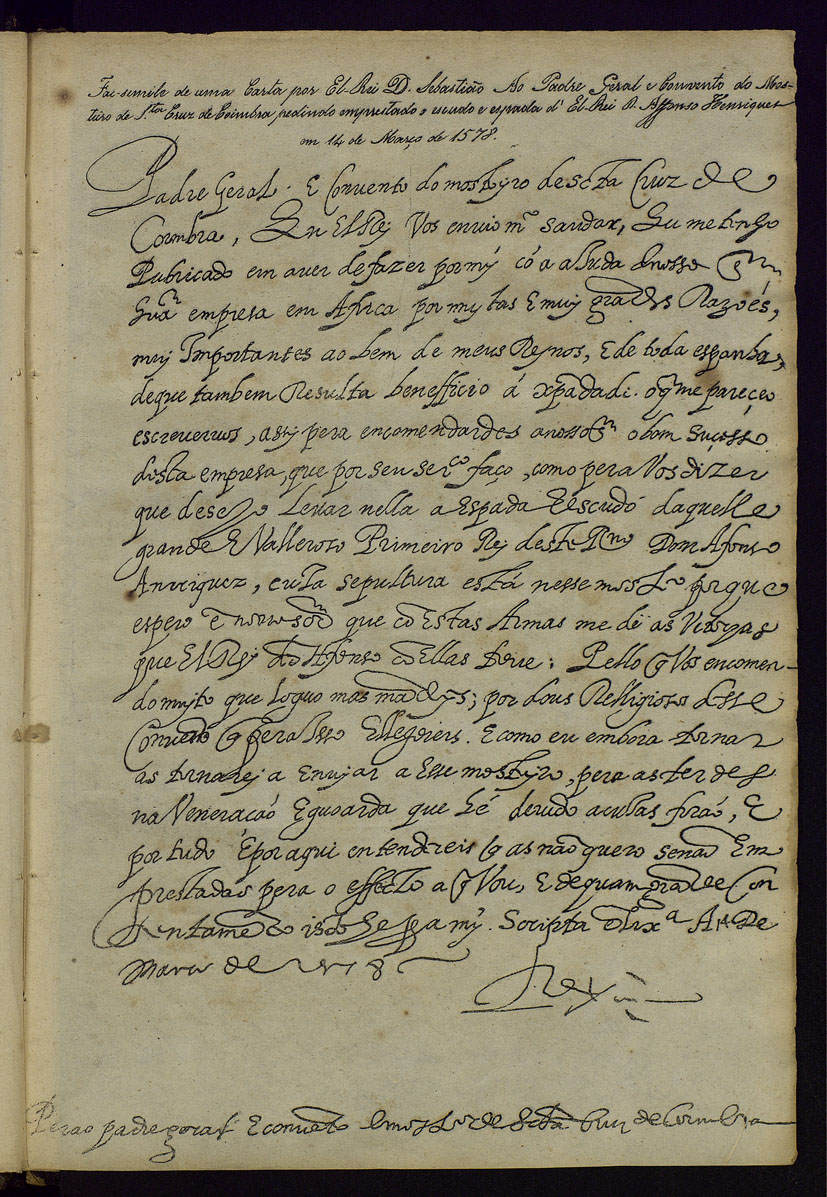 Fac-simile de uma Carta por El-Rei D. Sebastião Ao Padre Geral e Convento do Mos-
teiro de S.ta Cruz de Coimbra pedindo emprestado o escudo e espada d' El-Rei D. Affonso Henriques
em 14 de Março de 1578.
Padre Geral. E Convento do mosteyro de scta Cruz de
Coimbra, Eu El Rej Vos envio m.to saudar, Eu me tenho
Publicado em aver de fazer por mỹ cõ a aJuda de nosso Sõr
huã empresa em Africa por muytas E muy grãdes Razoẽs,
muj Importantes ao bem de meus Reynos, E de toda espanha,
de que tambem Resulta benefficio á xpandadi. o q̃ me pareçeo
escreuervos, assy pera encomendardes a nosso Sõr o bom suçesso
desta empresa, que por seu ser.ço faço, como pera Vos dizer
que deseJo Leuar nella a Espada E escudo daquelle
grande E Valleroso Primeiro Rej deste R.no Dom Afonso
Anrriquez, cuJa sepultura está nesse mostro porque
espero ẽ nosso sõr que cõ Estas Armas me dê as Vitoryas
que El Rej dõ Afonso cõ Ellas teue: Pello q̃ Vos encomen-
do muyto que loguo mas mãdeys; por dous Relligiosos desse
Conuẽto q̃ pera Isso Ellegereis. E como eu embora tornar
as tornarej a Enujar a Esse mosteyro, pera as terdes
na Veneração E guoarda que hé deuido a cuJas forão, E
por tudo E por aqui entendereis q̃ as não quero senão Em
prestadas pera o effecto a q̃ Vou, E de quam grãde Con
tentamẽto isto he pera mỹ. Scripta ẽ Lix.a A 14 De
Março de 1578
Rey
Pera o padre geral E conuẽto do mostro de Scta Cruz de Coimbra